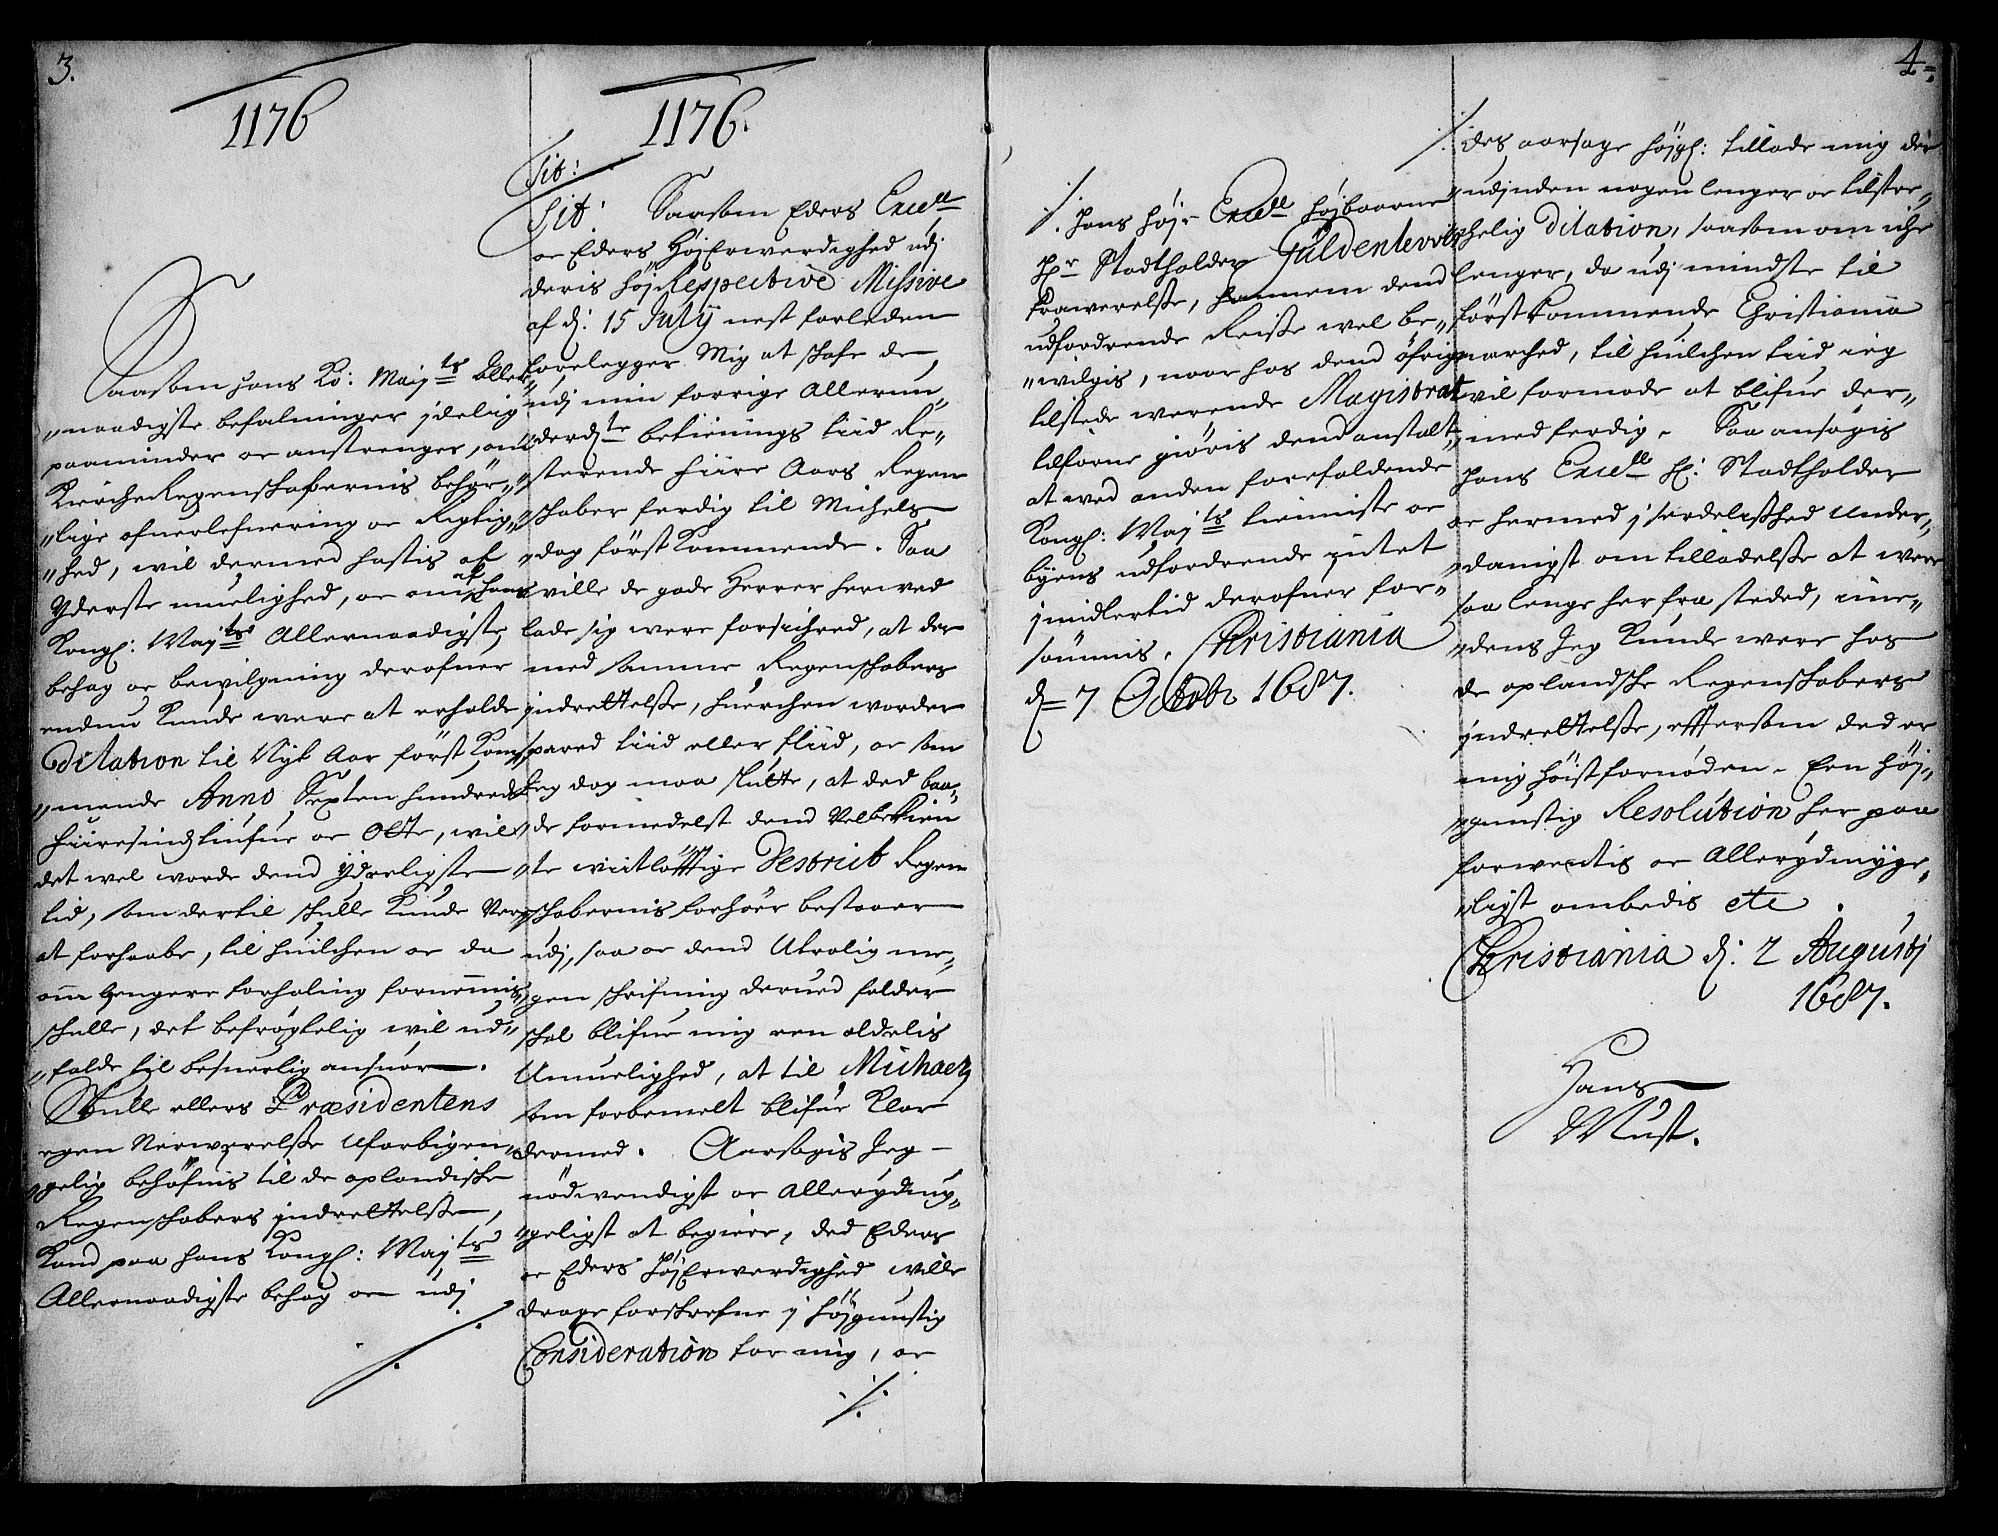 3.
1176
Saasom hans Ko: Mayts Aller
„naadigste befalninger jdelig
paaminder oc anstrenger, om
KierckeRegenschabernis behør„
„lige ofuerlefuering oc Rigtig„
„hed, wil dermed hastis af
Yderste muelighed, oc om af hans
Kongl: Mayts Allernaadigste
behag oc bewilgning derofuer
endnu Kunde were at erholde
Dilation til Nyt Aar først Kom„
„mende Anno Sexten hundrede
fiiresindstiufue oc Otte, wil
det wel worde dend Yderligste
tid, som dertil schulle Kunde Vere
at forhaabe, til huilchen oc da
om lengere forhaling fornemmis
schulle, det befrøgtelig wil ud„
„falde til besuerlig ansuar.
Skulle ellers Præsidentens
egen Nerwerelsse Uforbigen„
„gelig behøfuis til de oplandische
Regenschabers jndrettelsse,
Kand paa hans Kongl: Mayts
Allernaadigste behag oc udj
./.
1176.
Lit:
Lit: Saasom Eders Excelle
oc Eders HøjErwerdighed udj
deris høj Respective Missive
af d: 15 Julij nest forleden
forelegger Mig at schafe de
udj min forrige Allerun„
„derd:ste betienings tiid Re„
„sterende fiire Aars Regen
„schaber ferdig til Michels
„dag først Kommende. Saa
wille de gode Herrer herwed
lade sig were forsichred, at der
med samme Regenschabers
jndrettelsse, huerchen worder
spared tiid eller fliid, oc som
Jeg dog maa slutte, at ded baa„
„de formedelst dend Velbekien
„te wiitløfftige District Regen
„schabernis forhør bestaaer
udj, saa oc dend Utrolig me„
„gen schrifning derued falder
schal blifue mig een aldelis
Umuelighed, at til Michaelis
som forbemelt blifue Klar
dermed. Aarsagis Jeg
nødwendigst oc Allerydmy„
„geligst at begiere, ded Eders
oc Eders HøjErwerdighed wille
drage forschrefne j højgunstig
Consideration for mig, oc
./.
./. Hans høje Excelle Højbaarne
Hr Stadtholder Guldenlewes
frawerelsse, hannem dend
udfordrende Reisse wel be„
„wilgis, naar hos dend øfrige
tilstede werende Magistrat
tilforne giøris dend anstalt
at wed anden forefaldende
Kongl: Mayts tienniste oc
byens udfordrende jntet
jmidlertid derofuer for„
sømmis. Christiania
d= 7 Octobr 1687.
4.
./. des aarsage højgl: tillade mig der
„udjnden nogen lenger oc tilstre„
„chelig Dilation, saasom om iche
lenger, da udj mindste til
først Kommende Christiania
marched, til huilchen tiid ieg
wil formode at blifue der„
„med ferdig. Saa ansøgis
hans Excelle H: Stadtholder
oc hermed j serdelisshed Under„
„danigst om tilladelsse at were
saa lenge her fra stedet, ime„
„dens Jeg Kunde were hos
de oplandsche Regenschabers
jndrettelsse, efftersom ded er
mig høist fornøden. Een høj„
„gunstig Resolution her paa
forwentis oc Allerydmyge„
„ligst ombedis etc.
Christiania d: 2 Augustj
1687.
Hans
Must.